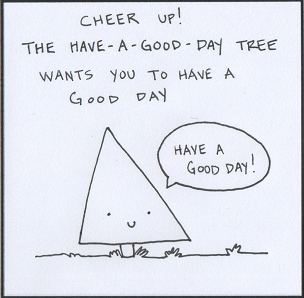 CHEER UP!
THE HAVE-A-GOOD-DAY TREE
WANTS YOU TO HAVE A
GOOD DAY
HAVE A
GOOD DAY!